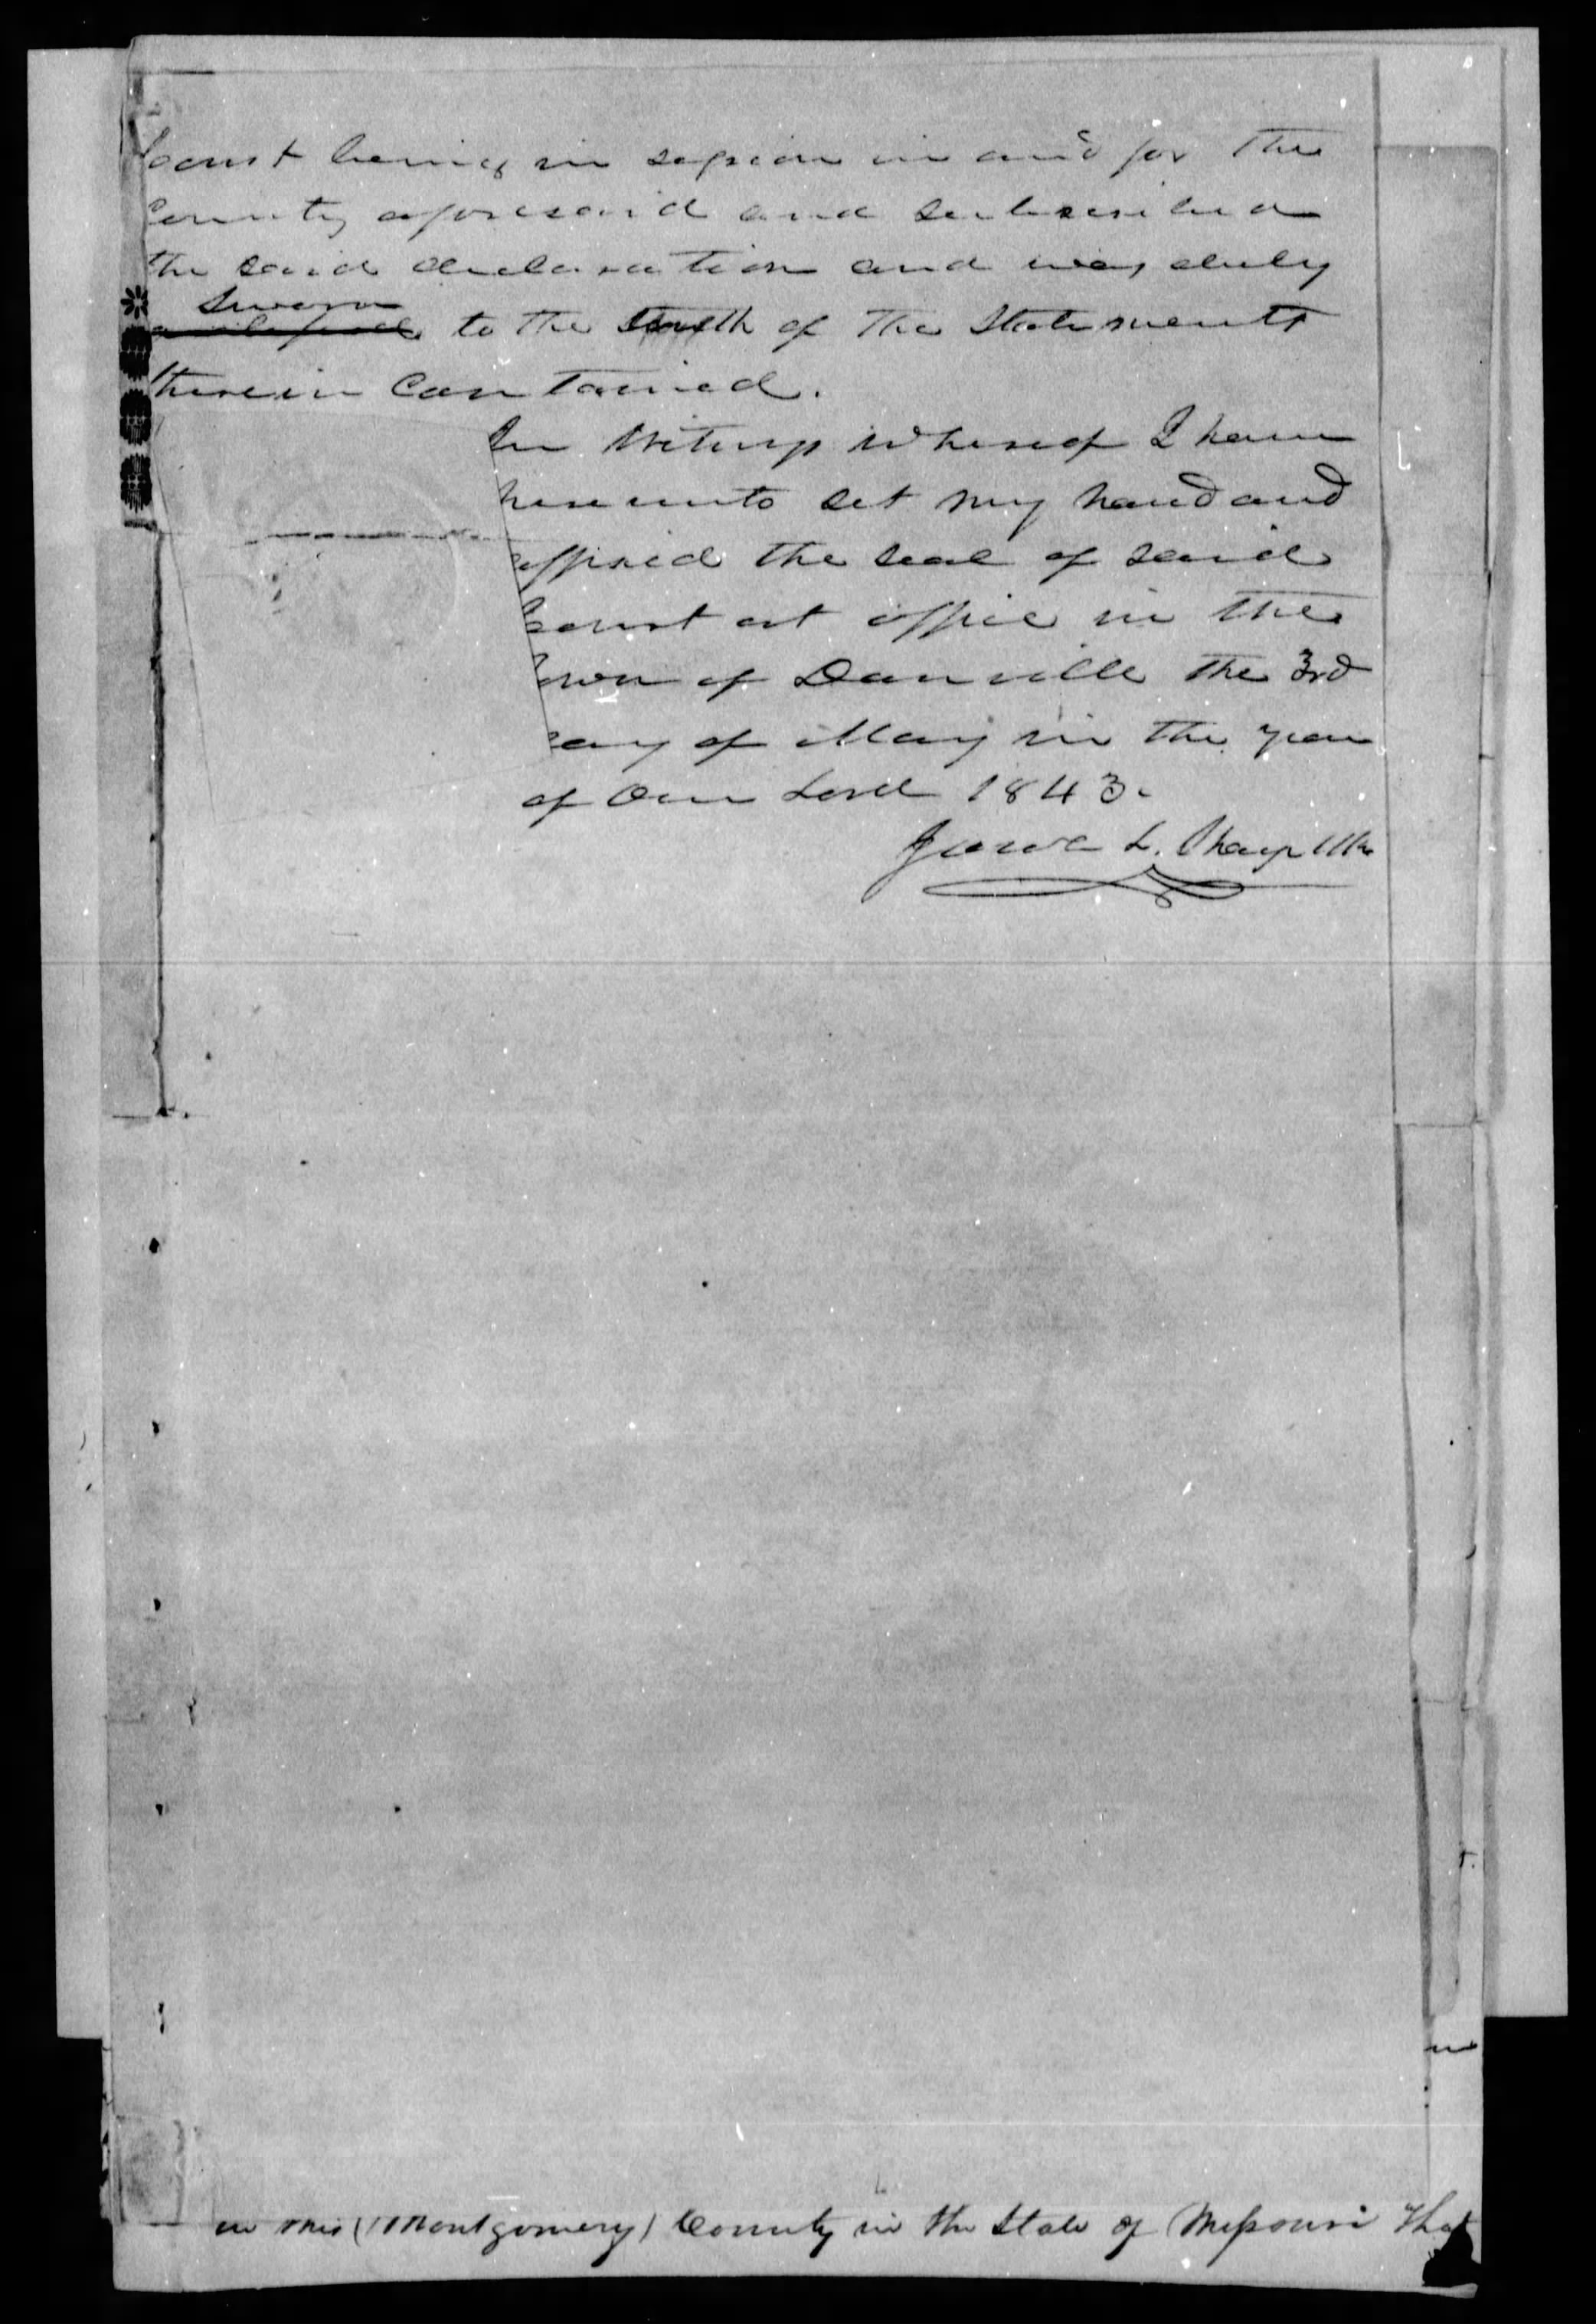 Court being in session in and for the
County aforesaid and subscribed
the said declaration and was duly
Sworn
to the truth of the Statements
therein Contained.
In Witness Whereof I have
hereunto set my hand and
affixed the seal of said
Court at office in the
Town of Danville the 3rd
day of May in the year
of Our Lord 1843.
L. Sharp Clk
in this (Montgomery) County in the State of Missouri that